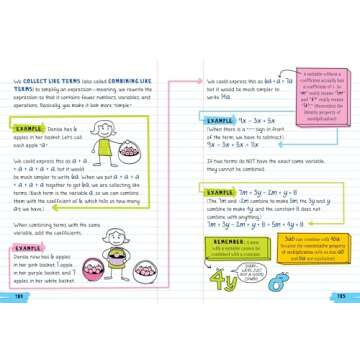 We COLLECT LIKE TERMS (also called COMBINING LIKE
TERMS) to simplify an expression—meaning, we rewrite the
expression so that it contains fewer numbers, variables, and
operations. Basically, you make it look more "simple."
EXAMPLE: Denise has 6
apples in her basket. Let's call
each apple "a."
We could express this as a + a
+ a + a + a + a, but it would be
much simpler to write 6a. When we put a + a + a
+ a + a + a together to get 6a, we are collecting like
terms. (Each term is the variable a, so we can combine
them with the coefficient of 6, which tells us how many
a's we have.)
When combining terms with the same
variable, add the coefficients.
EXAMPLE:
Denise now has 6 apples
in her pink basket, 1 apple
in her purple basket, and 7
apples in her white basket.
184
We could express this as 6a + a + 7a
but it would be much simpler to
write 14a.
A variable without a
coefficient actually has
a coefficient of 1. So
"m" really means "1m"
and
really means
(Remember the
identity property of
multiplication!)
EXAMPLE: 9x - 3x + 5x
(When there is a "-" sign in front
of the term, we have to subtract.)
9x - 3x + 5x = 11x
If two terms do NOT have the exact same variable,
they cannot be combined.
EXAMPLE: 7m + 3y - 2m + y + 8
(The 7m and -2m combine to make 5m, the 3y and y
combine to make 4y, and the constant 8 does not
combine with anything.)
7m + 3y - 2m + y + 8 = 5m + 4y + 8
REMEMBER: A term
with a variable cannot be
combined with a constant.
SORRY...
WE'RE JUST
NOT A GOOD
COMBO.
4y
3ab can combine with 4ba
because the commutative property
of multiplication tells us that ab
and ba are equivalent.
185